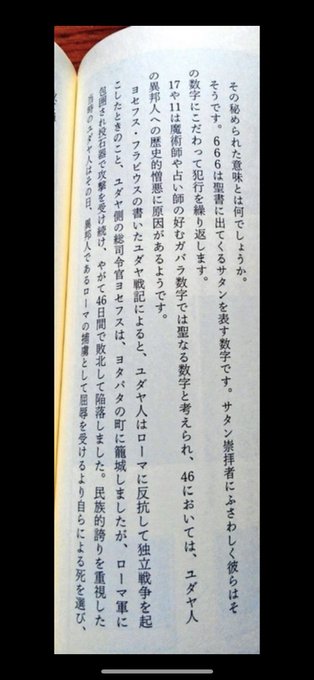 その秘められた意味とは何でしょうか。
そうです。６６６は聖書に出てくるサタンを表す数字です。サタン崇拝者にふさわしく彼らはそ
の数字にこだわって犯行を繰り返します。
17や11は魔術師や占い師の好むガバラ数字では聖なる数字と考えられ、46においては、ユダヤ人
の異邦人への歴史的憎悪に原因があるようです。
ヨセフス・フラビウスの書いたユダヤ戦記によると、ユダヤ人はローマに反抗して独立戦争を起
こしたときのこと、ユダヤ側の総司令官ヨセフスは、ヨタパタの町に籠城しましたが、ローマ軍に
包囲され投石器で攻撃を受け続け、やがて46日間で敗北して陥落しました。民族的誇りを重視した
当時のユダヤ人はその日、異邦人であるローマの捕虜として屈辱を受けるより自らによる死を選び、